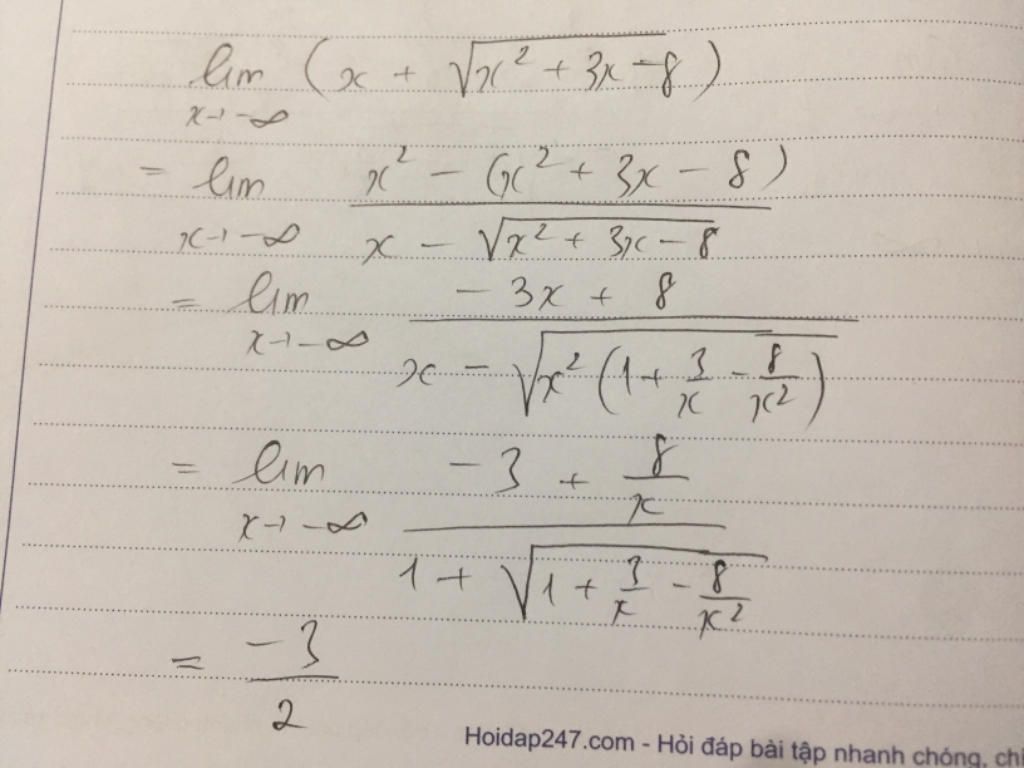 lim x→-∞ (x + √(x² + 3x - 8))
= lim x→-∞ (x² - (x² + 3x - 8)) / (x - √(x² + 3x - 8))
= lim x→-∞ (-3x + 8) / (x - √(x² (1 + 3/x - 8/x²)))
= lim x→-∞ (-3 + 8/x) / (1 + √(1 + 3/x - 8/x²))
= -3/2
Hoidap247.com - Hỏi đáp bài tập nhanh chóng,